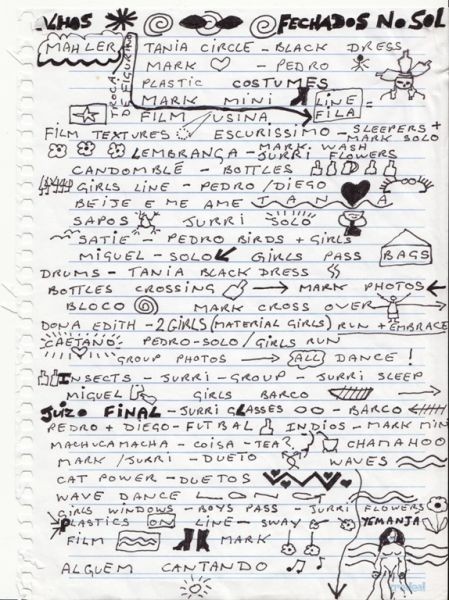 LHOS FECHADOS NO SOL
MAHLER TANIA CIRCLE - BLACK DRESS
TROCA DE FIGURINO
MARK PEDRO
PLASTIC COSTUMES
MARK MINI LINE FILA =
FILM USINA
FILM TEXTURES ESCURISSIMO - SLEEPERS + MARK SOLO
LEMBRANÇA - MARK WASH JURRI FLOWERS
CANDOMBLÉ - BOTTLES
GIRLS LINE - PEDRO/DIEGO
BEIJE E ME AME
SAPOS JURRI SOLO
SATIE - PEDRO BIRDS + GIRLS
MIGUEL - SOLO GIRLS PASS BAGS
DRUMS - TANIA BLACK DRESS
BOTTLES CROSSING MARK PHOTOS
BLOCO MARK CROSS OVER
DONA EDITH - 2 GIRLS (MATERIAL GIRLS) RUN + EMBRACE
CAETANO PEDRO-SOLO/GIRLS RUN
GROUP PHOTOS ALL DANCE!
INSECTS - JURRI - GROUP - JURRI SLEEP
MIGUEL GIRLS BARCO
JUIZO FINAL - JURRI GLASSES - BARCO
PEDRO + DIEGO - FUTBAL INDIOS - MARK MINI
MACHUCAMACHA - COISA - TEA? CHAMAHOO
MARK/JURRI - DUETO WAVES
CAT POWER - DUETOS
WAVE DANCE
GIRLS WINDOWS - BOYS PASS - JURRI FLOWERS
PLASTICS ON LINE - SWAY YEMANJA
FILM MARK
ALGUEM CANTANDO